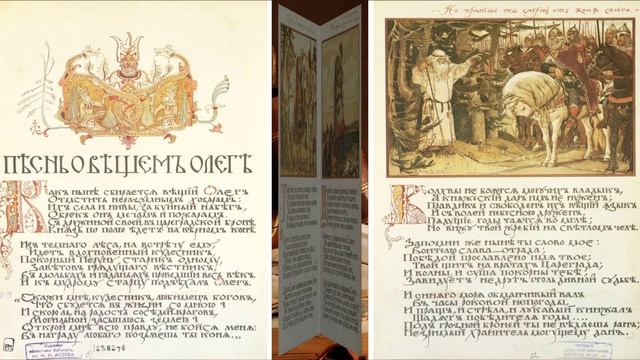 ПѢСНЬ О ВѢЩЕМЪ ОЛЕГѢ
Какъ нынѣ сбирается вѣщій Олегъ
Отмстить неразумнымъ хозарамъ:
Ихъ села и нивы, за буйный набѣгъ,
Обрекъ онъ мечамъ и пожарамъ.
Съ дружиной своей, въ цареградской бронѣ,
Князь по полю ѣдетъ на вѣрномъ конѣ.
Изъ темнаго лѣса, на встрѣчу ему,
Идетъ вдохновенный кудесникъ,
Покорный Перуну старикъ одному,
Завѣтовъ грядущаго вѣстникъ,
Въ мольбахъ и гаданьяхъ проведшій весь вѣкъ.
И къ мудрому старцу подъѣхалъ Олегъ.
Скажи мнѣ, кудесникъ, любимецъ боговъ,
Что сбудется въ жизни со мною?
И скоро ль, на радость сосѣдей враговъ,
Могильной засыплюсь землею?
Открой мнѣ всю правду, не бойся меня:
Въ награду любаго возьмешь ты коня.
258276
...Но примешь ты смерть отъ коня своего.
Волхвы не боятся могучихъ владыкъ,
А княжескій даръ имъ не нуженъ;
Правдивъ и свободенъ ихъ вѣщій языкъ
И съ волей небесною друженъ.
Грядущіе годы таятся во мглѣ;
Но вижу твой жребій на свѣтломъ челѣ.
Запомни же нынѣ ты слово мое:
Воителю слава — отрада;
Побѣдой прославлено имя твое;
Твой щитъ на вратахъ Цареграда;
И волны и суша покорны тебѣ;
Завидуетъ недругъ столь дивной судьбѣ.
И синяго моря обманчивый валъ
Въ часы роковой непогоды,
И пращъ, и стрѣла, и лукавый кинжалъ
Щадятъ побѣдителя годы...
Подъ грозной броней ты не вѣдаешь ранъ;
Незримый хранитель могущему данъ.